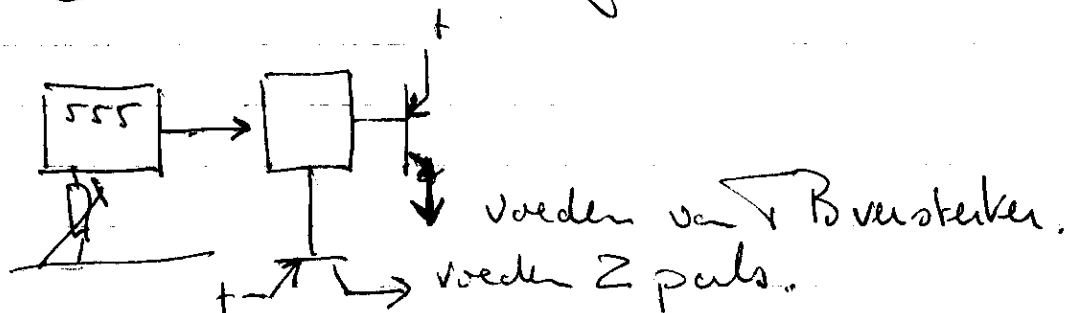 +
555
voeden van B versterker.
+ voeden Z puls.